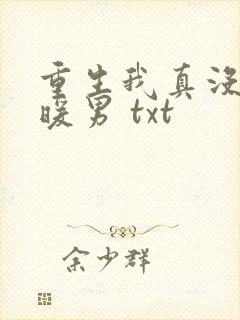 重生我真没
暖男 txt
余少群